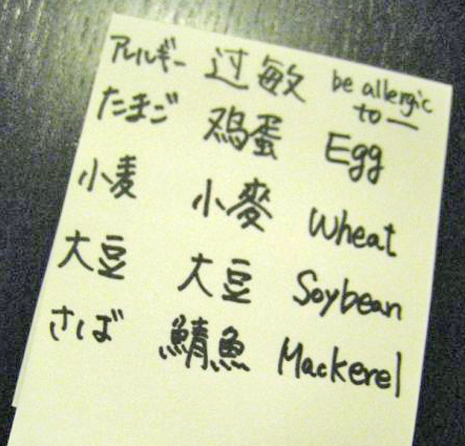 アレルギー 过敏 be allergic to —
たまご 鸡蛋 Egg
小麦 小麥 Wheat
大豆 大豆 Soybean
さば 鯖魚 Mackerel